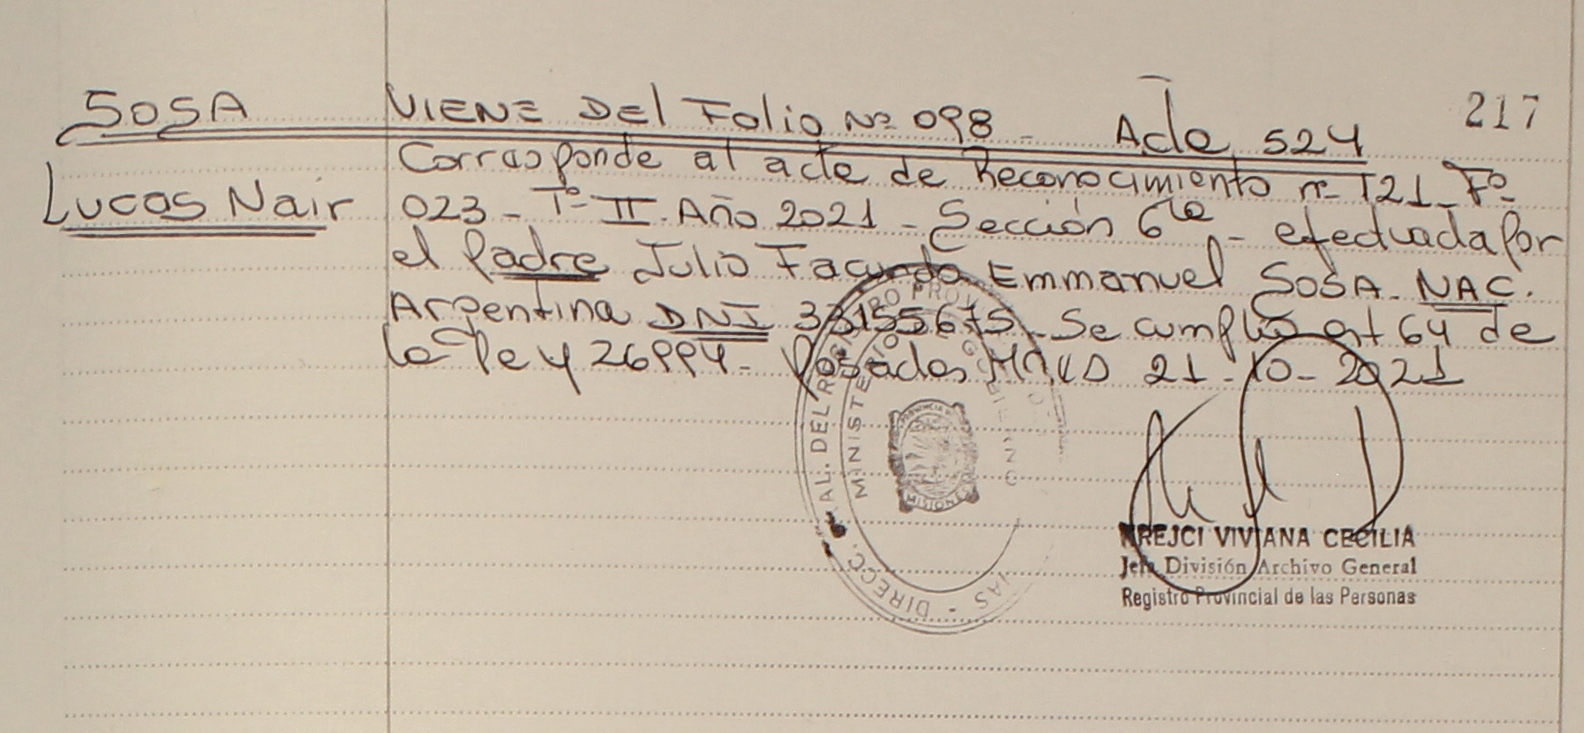 217
SOSA VIENE DEL Folio Nº 098 - Acta 524
Lucas Nair
Corresponde al acta de Reconocimiento nº 121 - Fº
023 - Tº II - Año 2021 - Sección 6ta - efectuada por
el Padre Julio Facundo Emmanuel SOSA - NAC.
Argentina DNI 33155675 - Se cumplió art 64 de
la ley 26994 - Posadas 21-10-2021
DIRECC. AL. DEL REGISTRO PROV
MINISTERIO GOBIERNO
PROVINCIA
MISIONES
KREJCI VIVIANA CECILIA
Jefa División Archivo General
Registro Provincial de las Personas